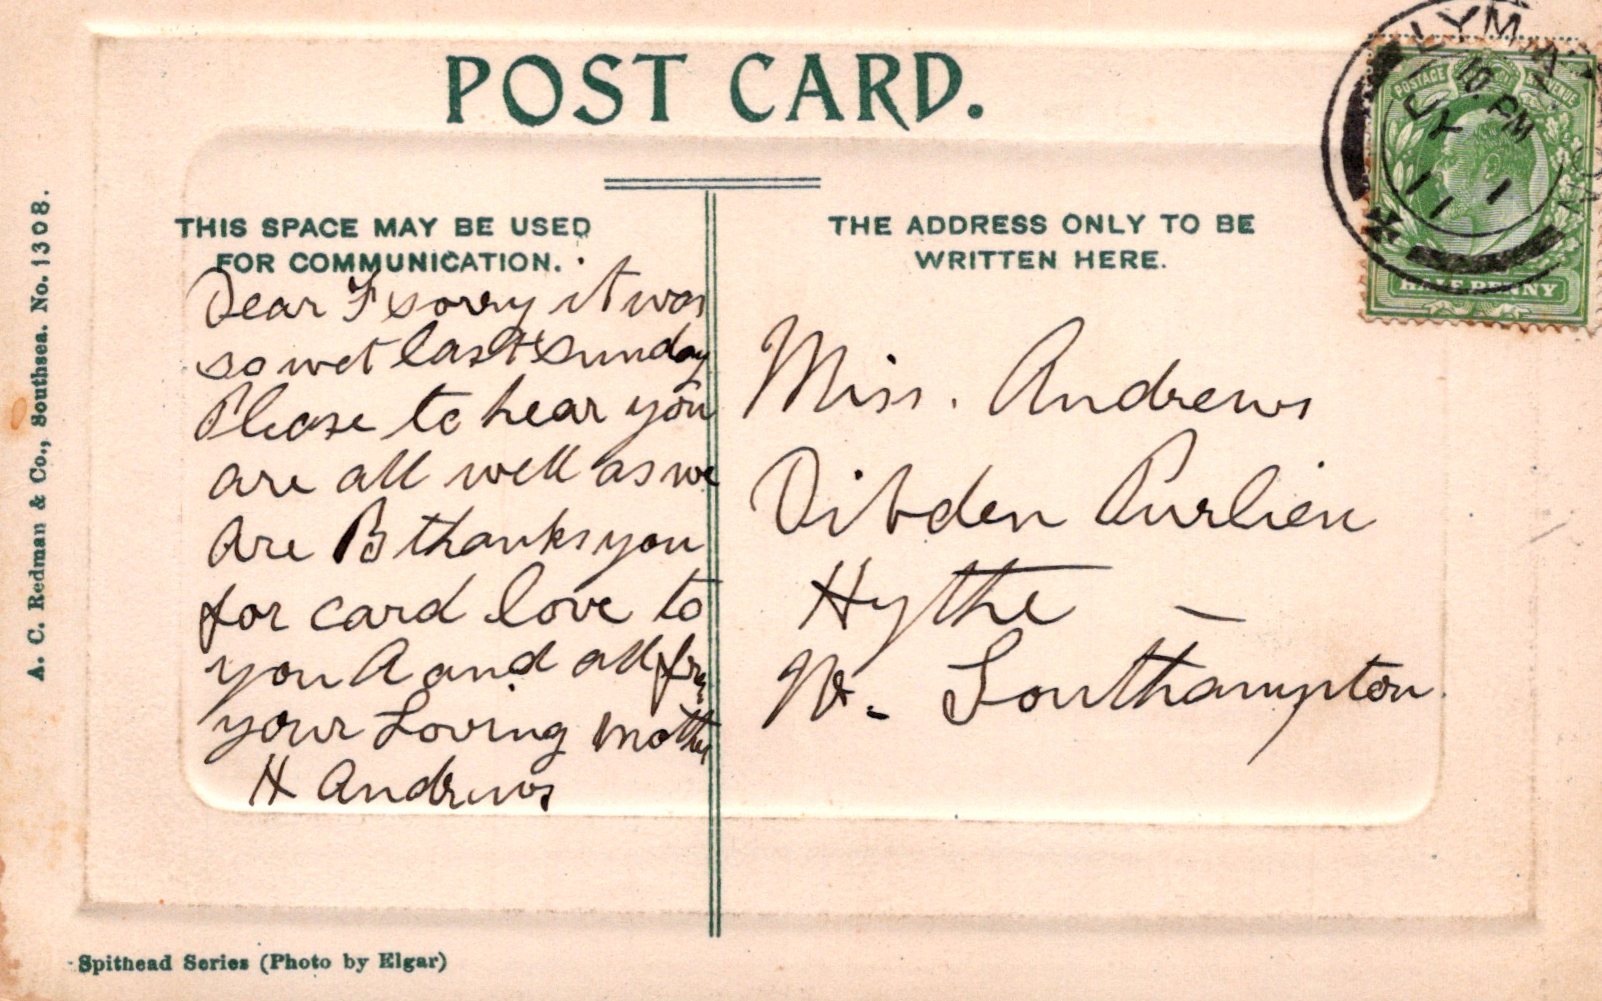 POST CARD.
THIS SPACE MAY BE USED
FOR COMMUNICATION.
Dear F sorry it was
so wet last Sunday
Please to hear you
are all well as we
are B thanks you
for card love to
you A and all fr
your Loving Mother
H Andrews
THE ADDRESS ONLY TO BE
WRITTEN HERE.
Miss. Andrews
Dibden Purlieu
Hythe
Nr. Southampton
LYM
10. PM
JY 1
11
POSTAGE
HALF PENNY
A. C. Redman & Co., Southsea. No. 1308.
Spithead Series (Photo by Elgar)